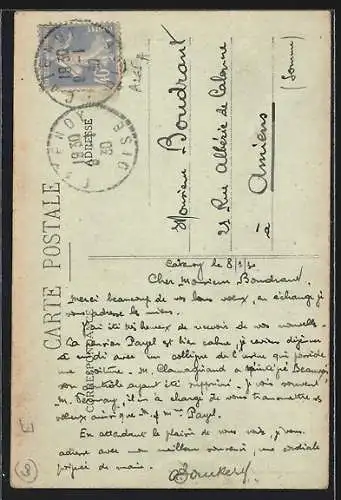 CARTE POSTALE
CORRESPONDANCE
ADRESSE
OISE
18 30
30
Monsieur Boudrant
21 Rue Albéric de Calonne
à Amiens
(Somme)
le 8/1/30
Cher Monsieur Boudrant.
Merci beaucoup de vos bons voeux, en échange je
vous adresse les miens.
J'ai été très heureux de recevoir de vos nouvelles.
La pension Payel est bien calme, je reviens déjeuner
à midi avec un collègue de l'usine qui possède
une voiture. M. a rejoint Beauvais
son contrôle ayant été supprimé. Je vois souvent
M. il m'a chargé de vous transmettre ses
voeux ainsi que M. & Mme Payel.
En attendant le plaisir de vous voir, je vous
adresse avec mon meilleur souvenir, une cordiale
poignée de main.